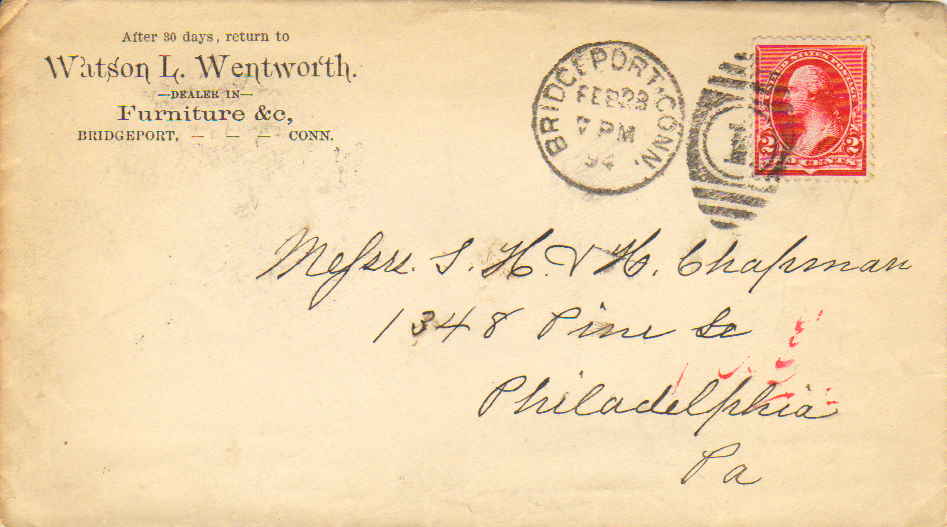 After 30 days, return to
Watson L. Wentworth.
—DEALER IN—
Furniture &c,
BRIDGEPORT, — — — CONN.
BRIDGEPORT, CONN.
FEB 28
7 PM
94
1
UNITED STATES POSTAGE
2 2
TWO CENTS
Messrs. S. H. & H. Chapman
1348 Pine St
Philadelphia
Pa